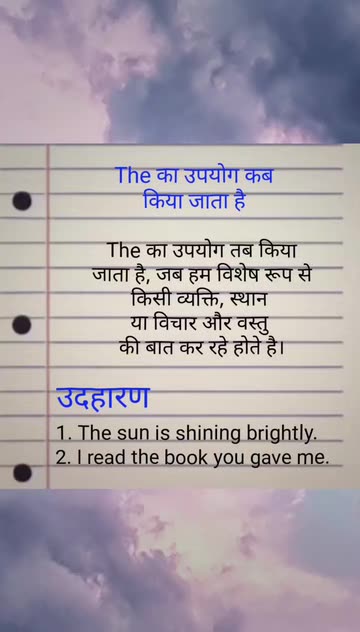 The का उपयोग कब
किया जाता है
The का उपयोग तब किया
जाता है, जब हम विशेष रूप से
किसी व्यक्ति, स्थान
या विचार और वस्तु
की बात कर रहे होते है।
उदहारण
1. The sun is shining brightly.
2. I read the book you gave me.